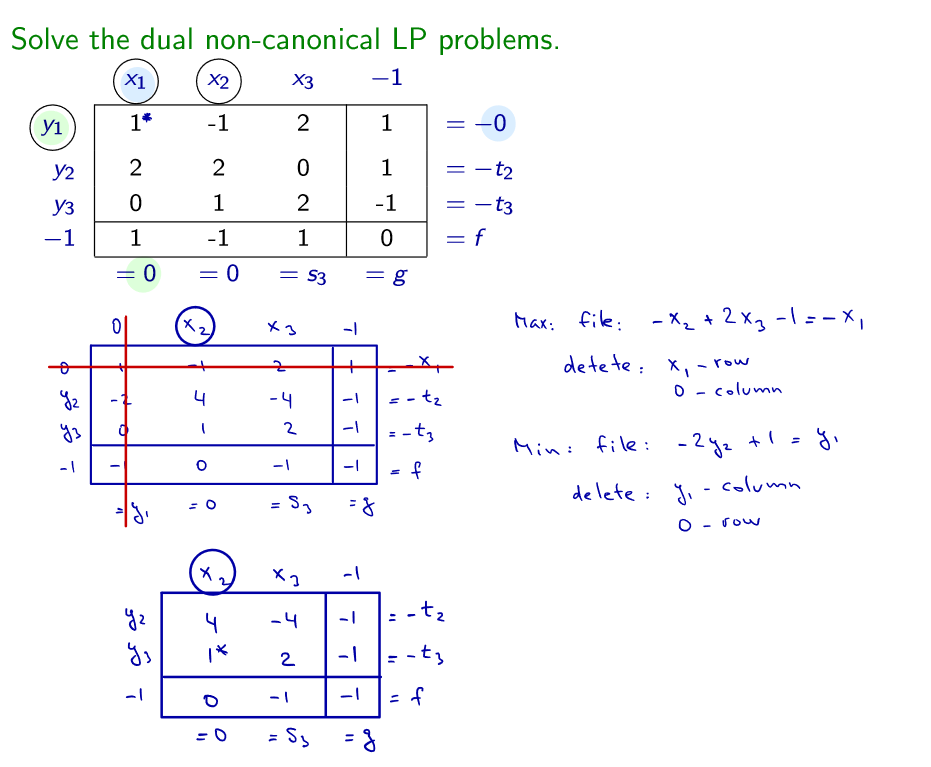 Solve the dual non-canonical LP problems.
x1 x2 x3 −1
y1 1* -1 2 1 = −0
y2 2 2 0 1 = −t2
y3 0 1 2 -1 = −t3
−1 1 -1 1 0 = f
= 0 = 0 = s3 = g
0 x2 x3 -1
0 1 -1 2 1 = -x1
y2 -2 4 -4 -1 = -t2
y3 0 1 2 -1 = -t3
-1 -1 0 -1 -1 = f
= y1 = 0 = s3 = g
Max: file: -x2 + 2x3 - 1 = -x1
detete: x1 - row
0 - column
Min: file: -2y2 + 1 = y1
delete: y1 - column
0 - row
x2 x3 -1
y2 4 -4 -1 = -t2
y3 1* 2 -1 = -t3
-1 0 -1 -1 = f
= 0 = s3 = g